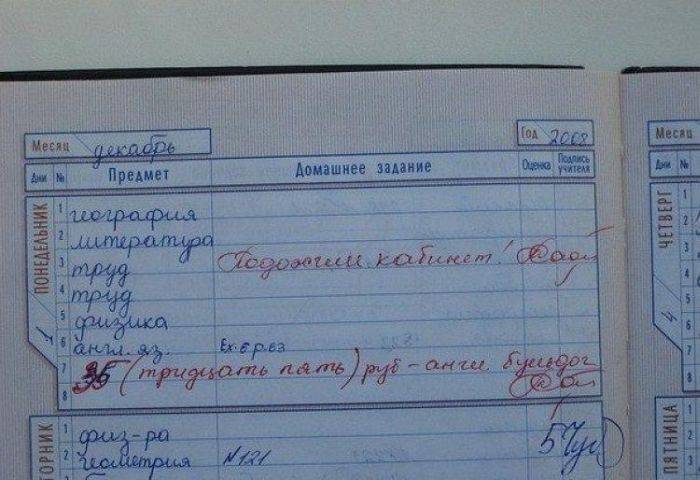 Месяц декабрь Год 2008 Месяц
Дни № Предмет Домашнее задание Оценка Подпись учителя Дни №
ПОНЕДЕЛЬНИК 1 ЧЕТВЕРГ 4
1 география 1
2 литература 2
3 труд Подожгли кабинет! 3
4 труд 4
5 физика 5
6 англ. яз. Ex. 6 p. 63 6
7 35 (тридцать пять) руб - англ. бульдог 7
8 8
ВТОРНИК ПЯТНИЦА
1 физ-ра 5 1
2 геометрия №121 2
3